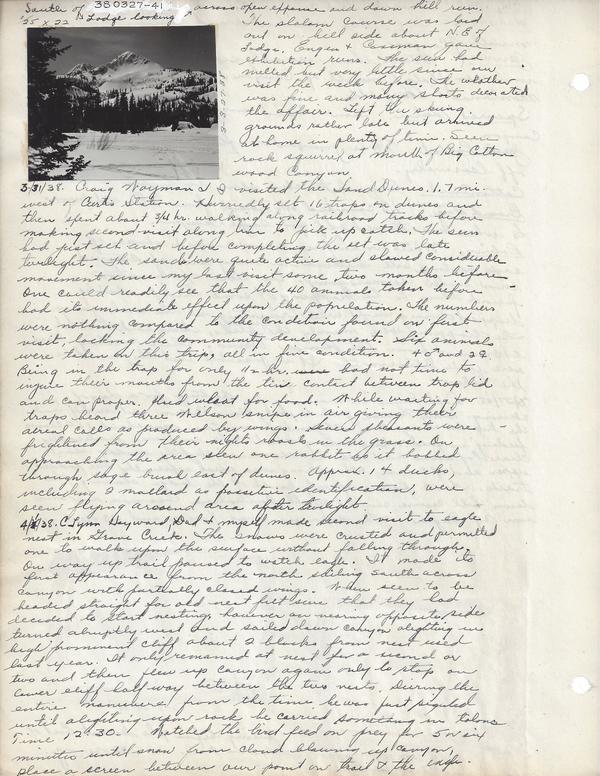 South of across open expanse and down hill run.
380327-41
25 x 22 Lodge looking
The slalom course was laid
out on hill side about N.E. of
Lodge. Engen & Cossman gave
exhibition runs. The sun had
melted but very little since our
visit the week before. The weather
was fine and many shots decorated
the affair. Left the skiing
grounds rather late but arrived
at home in plenty of time. Seen
rock squirrel at mouth of Big Cotton
wood Canyon
3/31/38. Craig Wayman & I visited the Sand Dunes. 1.7 mi.
west of station. Hurriedly set 16 traps on dunes and
then spent about 3/4 hr. walking along railroad tracks before
making second visit along line to pick up catch. The sun
had just set and before completing the set was late
twilight. The sands were quite active and showed considerable
movement since my last visit some two months before
One could readily see that the 40 animals taken before
had its immediate effect upon the population. The numbers
were nothing compared to the condition found on first
visit, lacking the community development. Six animals
were taken on this trip, all in fine condition. 4♂ and 2♀
Being in the trap for only 1½ hr. had not time to
injure their mouths from the tin contact between trap lid
and can proper. Used wheat for food. While waiting for
traps heard three Wilson snipe in air giving their
aerial calls as produced by wings. Seven pheasants were
frightened from their nights roosts in the grass. On
approaching the area seen one rabbit as it bobbed
through sage brush east of dunes. Approx. 14 ducks,
including 2 mallard as positive identification, were
seen flying around area after twilight
C. Lynn Hayward, Dad & myself made second visit to eagle
nest in Grove Creek. The snows were crusted and permitted
one to walk upon the surface without falling through.
On way up trail paused to watch eagle. It made its
first appearance from the north sailing south across
canyon with partially closed wings. When seen to be
headed straight for old nest felt sure that they had
decided to start nesting, however on nearing opposite side
turned abruptly west and sailed down canyon alighting on
high prominent cliff about 2 blocks from nest used
last year. It only remained at nest for a second or
two and then flew up canyon again only to stop on
lower cliff half way between the two nests. During the
entire maneuver from the time he was first sighted
until alighting upon rock he carried something in talons
Time 12:30. Watched the bird feed on prey for 5 or six
minutes until snow from cloud blowing up canyon,
place a screen between our point on trail & the